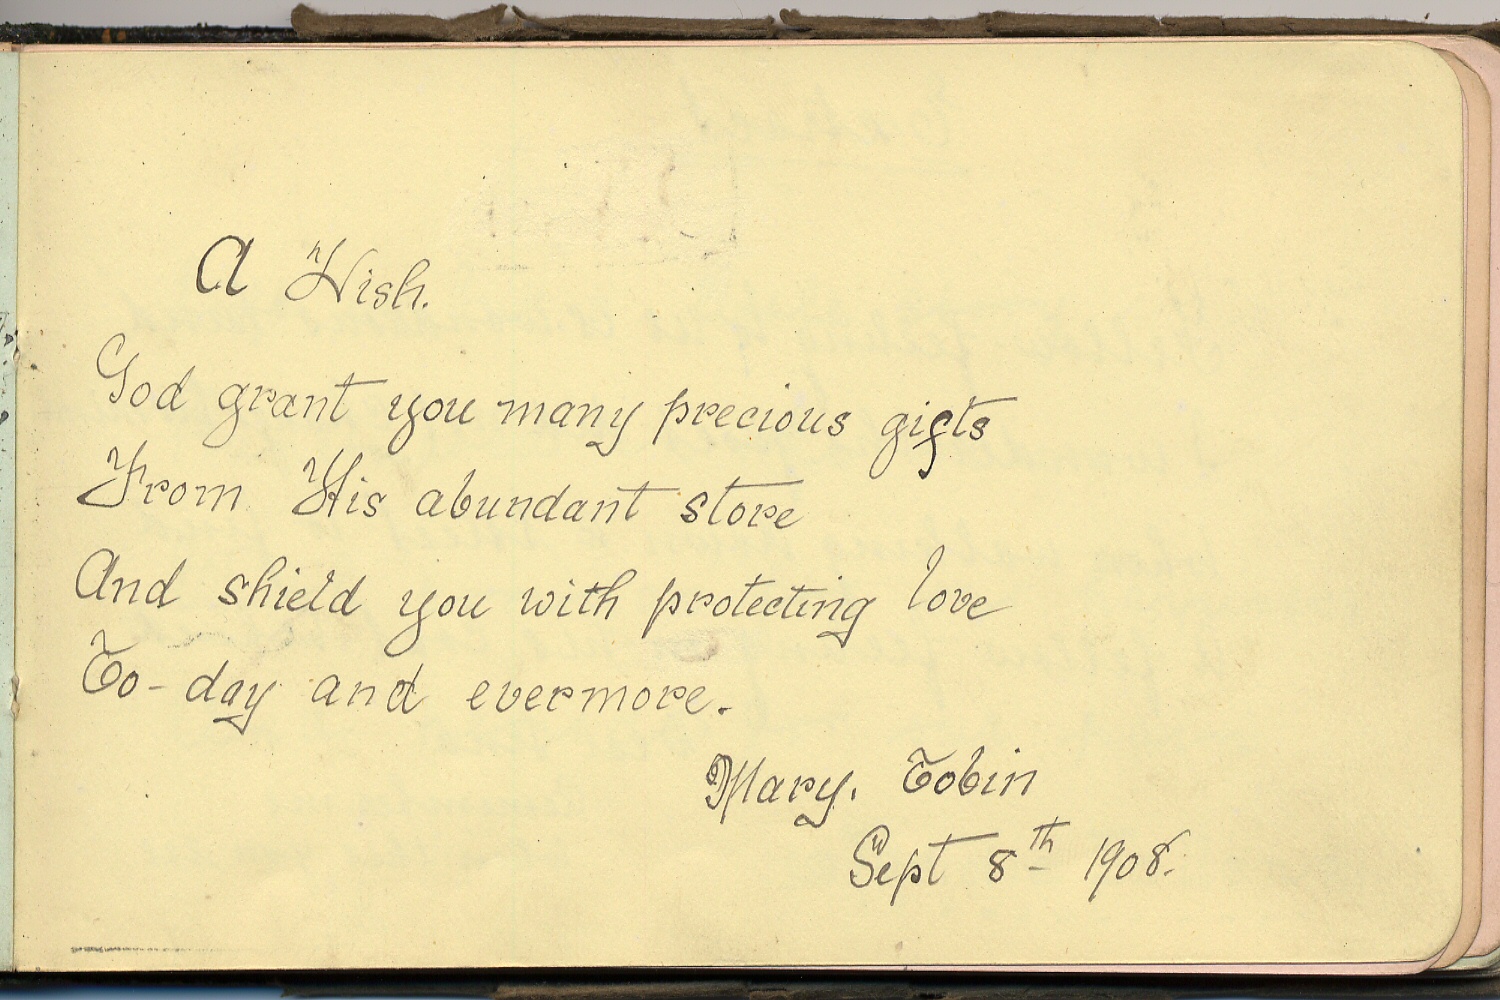 A Wish.
God grant you many precious gifts
From His abundant store
And shield you with protecting love
To-day and evermore.
Mary. Tobin
Sept 8th 1908.